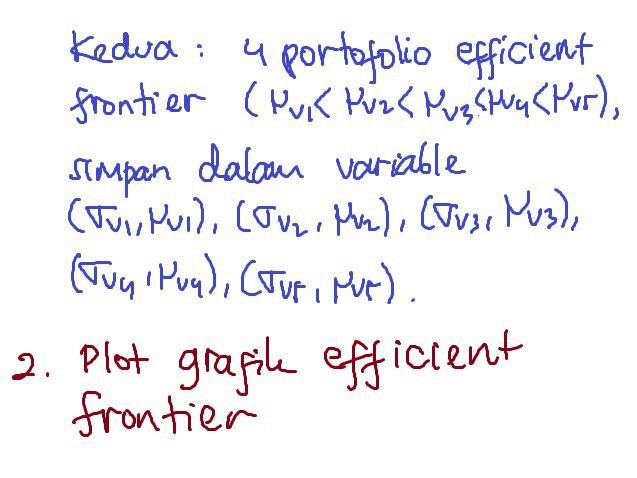 Kedua : 4 portofolio efficient
frontier (μv1 < μv2 < μv3 < μv4 < μv5),
simpan dalam variable
(σv1, μv1), (σv2, μv2), (σv3, μv3),
(σv4, μv4), (σv5, μv5).
2. Plot grafik efficient
frontier